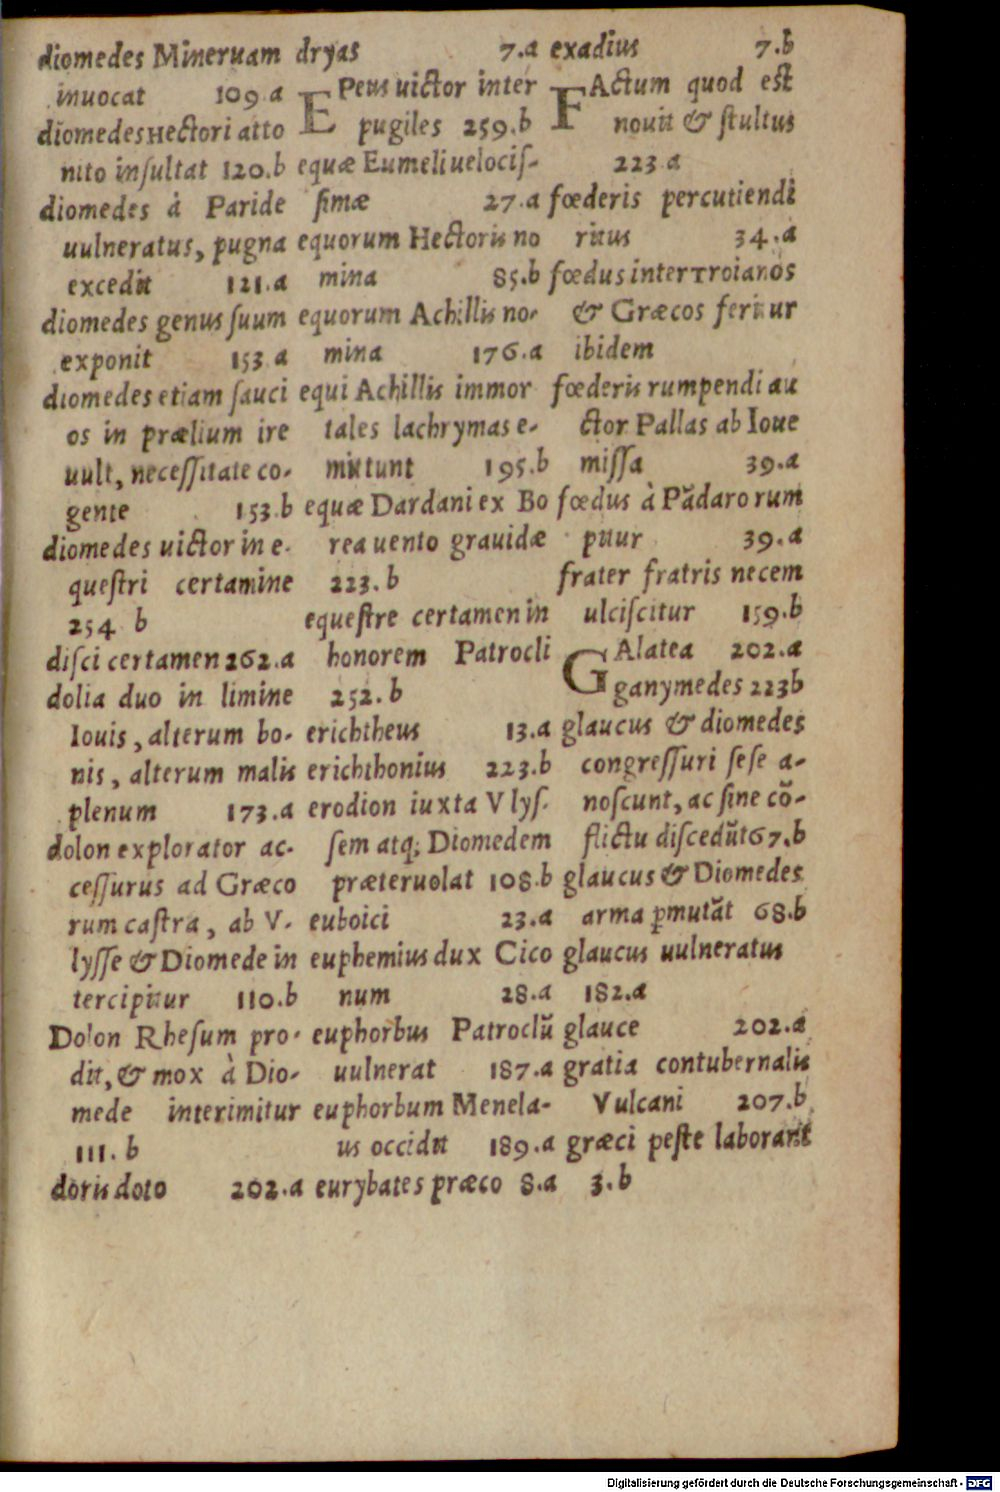 diomedes Mineruam
inuocat 109 a
diomedes Hectori atto
nito inſultat 120.b
diomedes à Paride
uulneratus, pugna
excedit 121.a
diomedes genus ſuum
exponit 153 a
diomedes etiam ſauci
os in prælium ire
uult, neceſſitate co-
gente 153.b
diomedes uictor in e-
queſtri certamine
254 b
diſci certamen 262.a
dolia duo in limine
Iouis, alterum bo-
nis, alterum malis
plenum 173.a
dolon explorator ac-
ceſſurus ad Græco
rum caſtra, ab V-
lyſſe & Diomede in
tercipitur 110.b
Dolon Rheſum pro-
dit, & mox à Dio-
mede interimitur
111. b
doris doto 202.a
dryas 7.a
EPeus uictor inter
pugiles 259.b
equæ Eumeli uelociſ-
ſimæ 27.a
equorum Hectoris no
mina 85.b
equorum Achillis no-
mina 176.a
equi Achillis immor
tales lachrymas e-
mittunt 195.b
equæ Dardani ex Bo
rea uento grauidæ
223. b
equeſtre certamen in
honorem Patrocli
252. b
erichtheus 13.a
erichthonius 223.b
erodion iuxta Vlyſ-
ſem atq; Diomedem
præteruolat 108.b
euboici 23.a
euphemius dux Cico
num 28.a
euphorbus Patroclū
uulnerat 187.a
euphorbum Menela-
us occidit 189.a
eurybates præco 8.a
exadius 7.b
FActum quod eſt
nouit & ſtultus
223 a
fœderis percutiendi
ritus 34.a
fœdus inter Troianos
& Græcos feritur
ibidem
fœderis rumpendi au
ctor Pallas ab Ioue
miſſa 39.a
fœdus à Pādaro rum
pitur 39.a
frater fratris necem
ulciſcitur 159.b
GAlatea 202.a
ganymedes 223b
glaucus & diomedes
congreſſuri ſeſe a-
noſcunt, ac ſine cō-
flictu diſcedūt 67.b
glaucus & Diomedes
arma ꝑmutāt 68.b
glaucus uulneratus
182.a
glauce 202.a
gratia contubernalis
Vulcani 207.b
græci peſte laborant
3. b
Digitalisierung gefördert durch die Deutsche Forschungsgemeinschaft - DFG